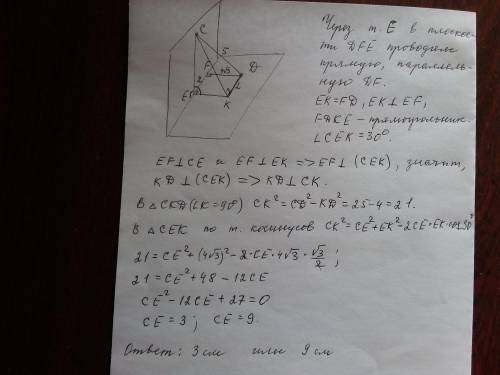 C
5
F
4√3
D
2
2
E
K
Через т. E в плоскос-
ти DFE проводим
прямую, параллель-
ную DF.
EK=FD, EK⊥EF,
FDKE – прямоугольник.
∠CEK=30°.
EF⊥CE и EF⊥EK => EF⊥(CEK), значит,
KD⊥(CEK) => KD⊥CK.
В △CKD (∠K=90°) CK²=CD²-KD²=25-4=21.
В △CEK по т. косинусов CK²=CE²+EK²-2CE·EK·cos30°
21=CE²+(4√3)²-2·CE·4√3·√3/2;
21=CE²+48-12CE
CE²-12CE+27=0
CE=3; CE=9.
Ответ: 3 см или 9 см